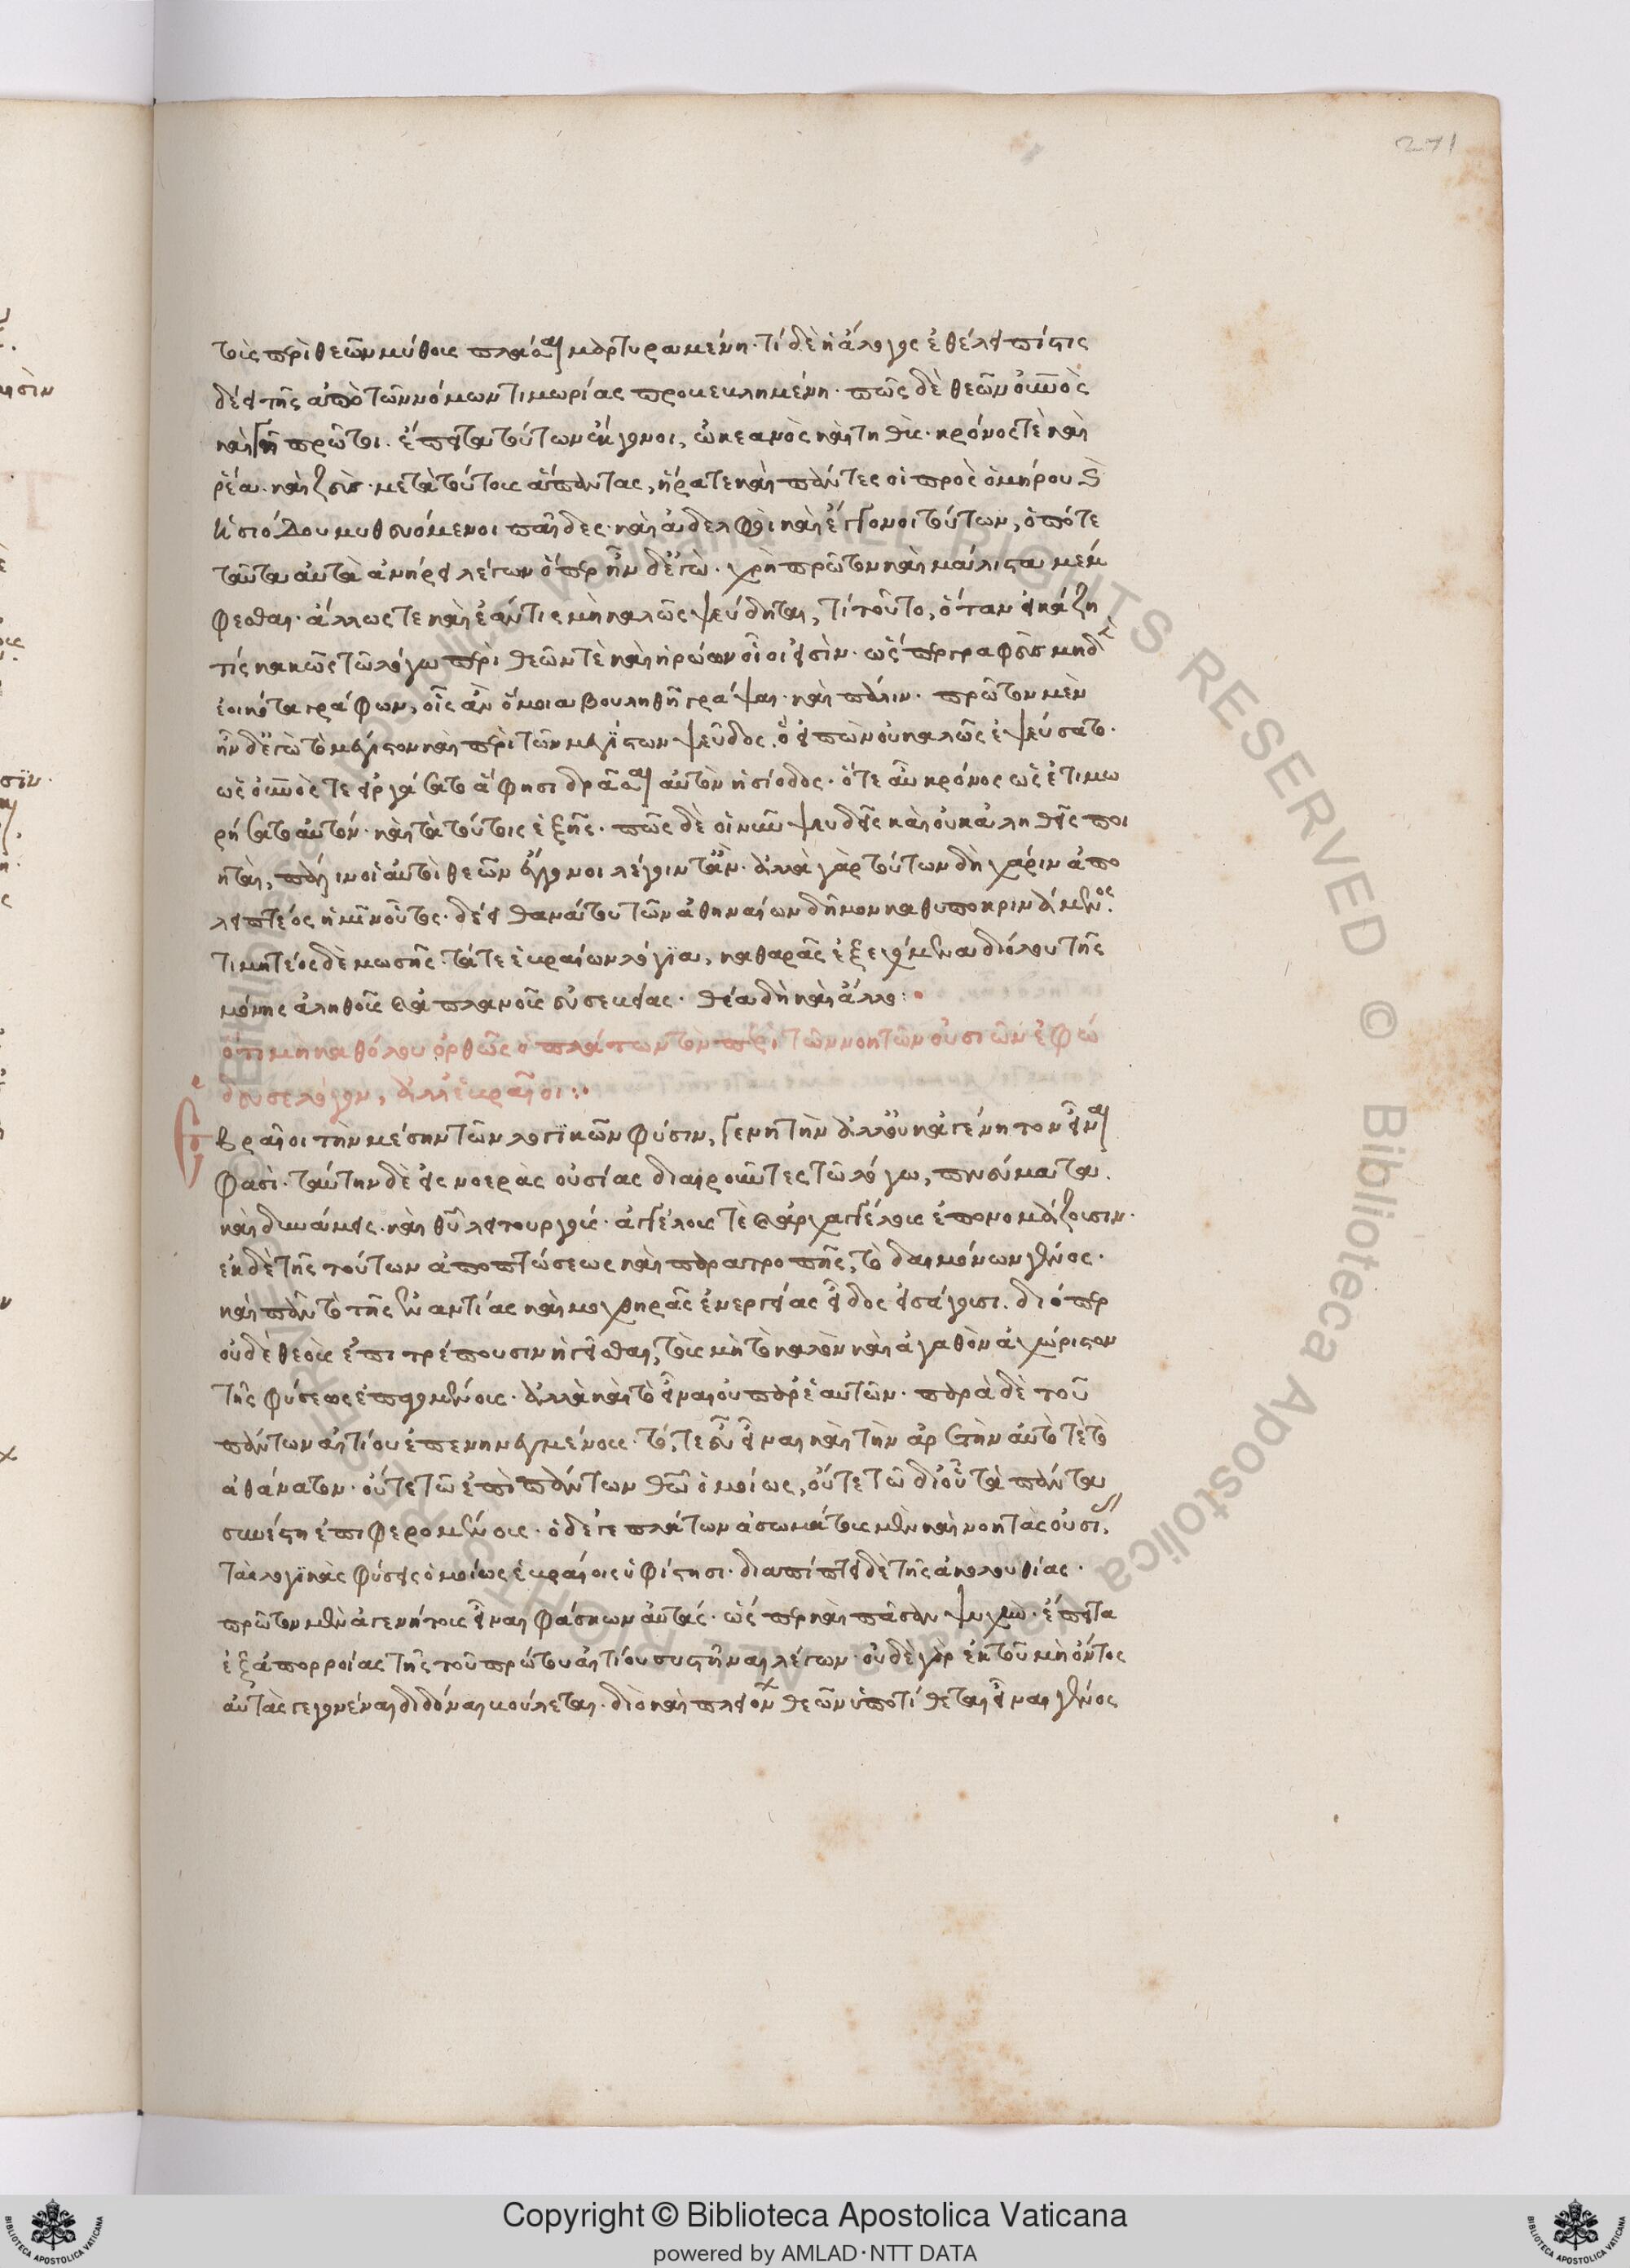 271
τοῖς περὶ θεῶν μύθοις πλάσαι μαρτυραμένη· τί δὲ ἡ ἄλογος ἐθέλει πίστις
δέει τῆς ἀπὸ τῶν νόμων τιμωρίας προκεκλημένη· πῶς δὲ θεῶν οὐνὸς
καὶ γῆ πρῶτοι. ἔπειτα τούτων ἔκγονοι, ὠκεανὸς καὶ τηθύς· κρόνος τὲ καὶ
ῥέα. καὶ ζεὺς· μετὰ τούτους ἅπαντας, ἥρα τε καὶ πάντες οἱ πρὸς ὁμήρου καὶ
ἡσιόδου μυθευόμενοι παῖδες· καὶ ἀδελφοὶ καὶ ἔκγονοι τούτων, ὁπότε
ταῦτα αὐτὰ ἀνήρει λέγων ὅπερ ἦν δἐγὼ· χρὴ πρῶτον καὶ μάλιστα μέμ
φεσθαι· ἄλλως τε καὶ ἐάν τις μὴ καλῶς ψεύδηται, τί τοῦτο, ὅταν εἰκάζη
τίς κακῶς τῶ λόγω περὶ θεῶν τὲ καὶ ἡρώων οἷοι εἰσὶν· ὥσπερ γραφεὺς μηδὲ
ἐοικότα γράφων, οἷς ἂν ὅμοια βουληθῆ γράψαι· καὶ πάλιν· πρῶτον μὲν
ἦν δἐγὼ τὸ μέγιστον καὶ περὶ τῶν μεγίστων ψεῦδος. ὁ εἰπὼν οὐ καλῶς ἐψεύσατο·
ὡς οὐνός τε εἰργάσατο ἅ φησι δρᾶσαι αὐτὸν ἡσίοδος· ὅτε αὖ κρόνος ὡς ἐτιμω
ρήσατο αὐτόν· καὶ τὰ τούτοις ἑξῆς· πῶς δὲ οἱ νῦν ψευδεῖς καὶ οὐκ ἀληθεῖς ποι
ηταὶ, πάλιν οἱ αὐτοὶ θεῶν ἔκγονοι λέγοιντ' ἂν· ἀλλὰ γὰρ τούτων δὴ χάριν ἀπο
λειπτέος ἡμῖν οὗτος· δέει θανάτου τῶν ἀθηναίων δῆμον καθυποκρινάμενος·
τιμητέος δὲ μωσῆς· τά τε ἑβραίων λόγια, καθαρᾶς ἐξεχόμενα διόλου τῆς
μόνης ἀληθοῦς καὶ ἀπλανοῦς εὐσεβείας· θέα δὴ καὶ ἄλλο:
ὅτι μὴ καθόλου ὀρθῶς ὁ πλάτων τὸν περὶ τῶν νοητῶν οὐσιῶν ἐφώ
δευσε λόγον, ἀλλ' ἑβραῖοι:
Ἑβραῖοι τὴν μέσην τῶν λογικῶν φύσιν, γενητὴν ἀλλ' οὐκ ἀγένητον εἶναι
φασὶ· ταύτην δὲ εἰς νοερὰς οὐσίας διαιροῦντες τῶ λόγω, πνεύματα.
καὶ δυνάμεις· καὶ θῦ λειτουργοὺς· ἀγγέλους τὲ καὶ ἀρχαγγέλους ἐπονομάζουσιν·
ἐκ δὲ τῆς τούτων ἀποπτώσεως καὶ παρατροπῆς, τὸ δαιμόνων γένος·
καὶ πᾶν τὸ τῆς ἐναντίας καὶ μοχθηρᾶς ἐνεργείας εἶδος εἰσάγουσι. διόπερ
οὐδὲ θεοὺς ἐπιτρέπουσιν ἡγεῖσθαι, τοὺς μὴ τὸ καλὸν καὶ ἀγαθὸν ἀχώριστον
τῆς φύσεως ἐπαγομένους· ἀλλὰ καὶ τὸ εἶναι οὐ παρ' ἑαυτῶν· παρὰ δὲ τοῦ
πάντων αἰτίου ἐπενηνεγμένους· τό, τε εὖ εἶναι καὶ τὴν ἀρετὴν αὐτὸ τὲ τὸ
ἀθάνατον· οὔτε τῶ ἐπὶ πάντων θῶ ὁμοίως, οὔτε τῶ δι' οὗ τὰ πάντα
συνέστη ἐπιφερομένους· ὁ δέ γε πλάτων ἀσωμάτους μὲν καὶ νοητὰς οὐσίας
τὰς λογικὰς φύσεις ὁμοίως ἑβραίοις ὑφίστησι· διαπίπτει δὲ τῆς ἀκολουθίας·
πρῶτον μὲν ἀγενήτους εἶναι φάσκων αὐτάς· ὥσπερ καὶ πᾶσαν ψυχὴν· ἔπειτα
ἐξ ἀπορροίας τῆς τοῦ πρώτου αἰτίου συστῆναι λέγων· οὐδὲ γὰρ ἐκ τοῦ μὴ ὄντος
αὐτὰς γεγονέναι διδόναι βούλεται· διὸ καὶ πλεῖον θεῶν ὑποτίθεται εἶναι γένος
Copyright © Biblioteca Apostolica Vaticana
powered by AMLAD·NTT DATA